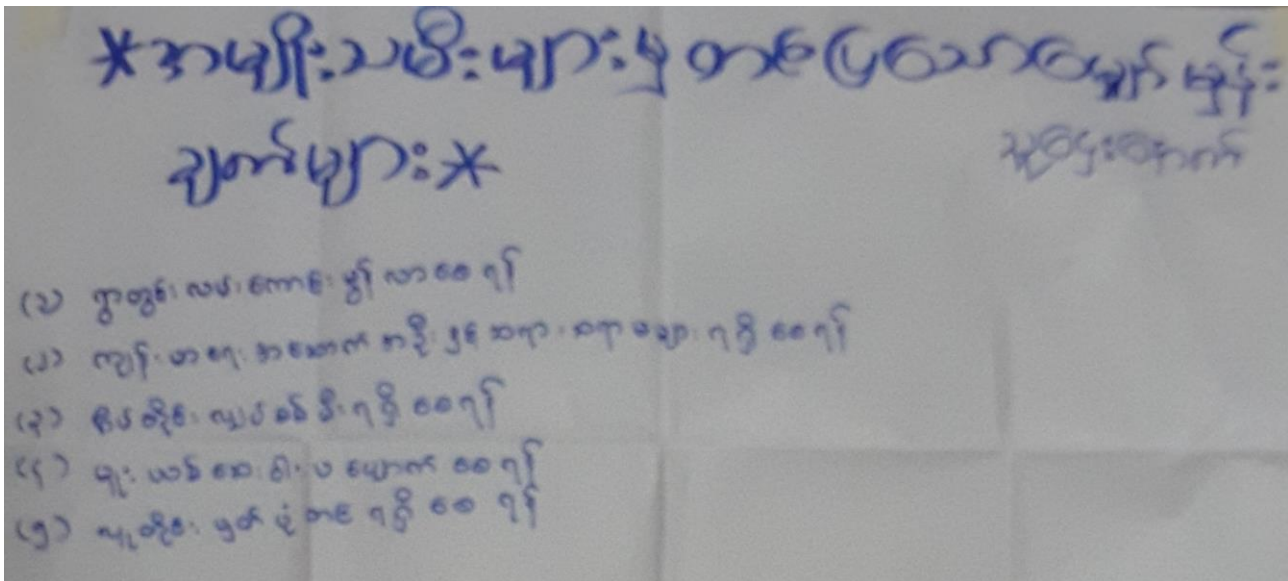 *အမျိုးသမီးများမှ တင်ပြသော မျှော်မှန်း
ချက်များ*
(၁) ရွာတွင်း လမ်းကောင်းမွန်လာစေရန်
(၂) ကျန်းမာရေး အဆောက်အဦးနှင့် ဆရာ၊ ဆရာမများ ရရှိစေရန်
(၃) အိမ်တိုင်း လျှပ်စစ်မီးရရှိစေရန်
(၄) မူးယစ်ဆေးဝါး ပပျောက်စေရန်
(၅) လူတိုင်း မှတ်ပုံတင် ရရှိစေရန်